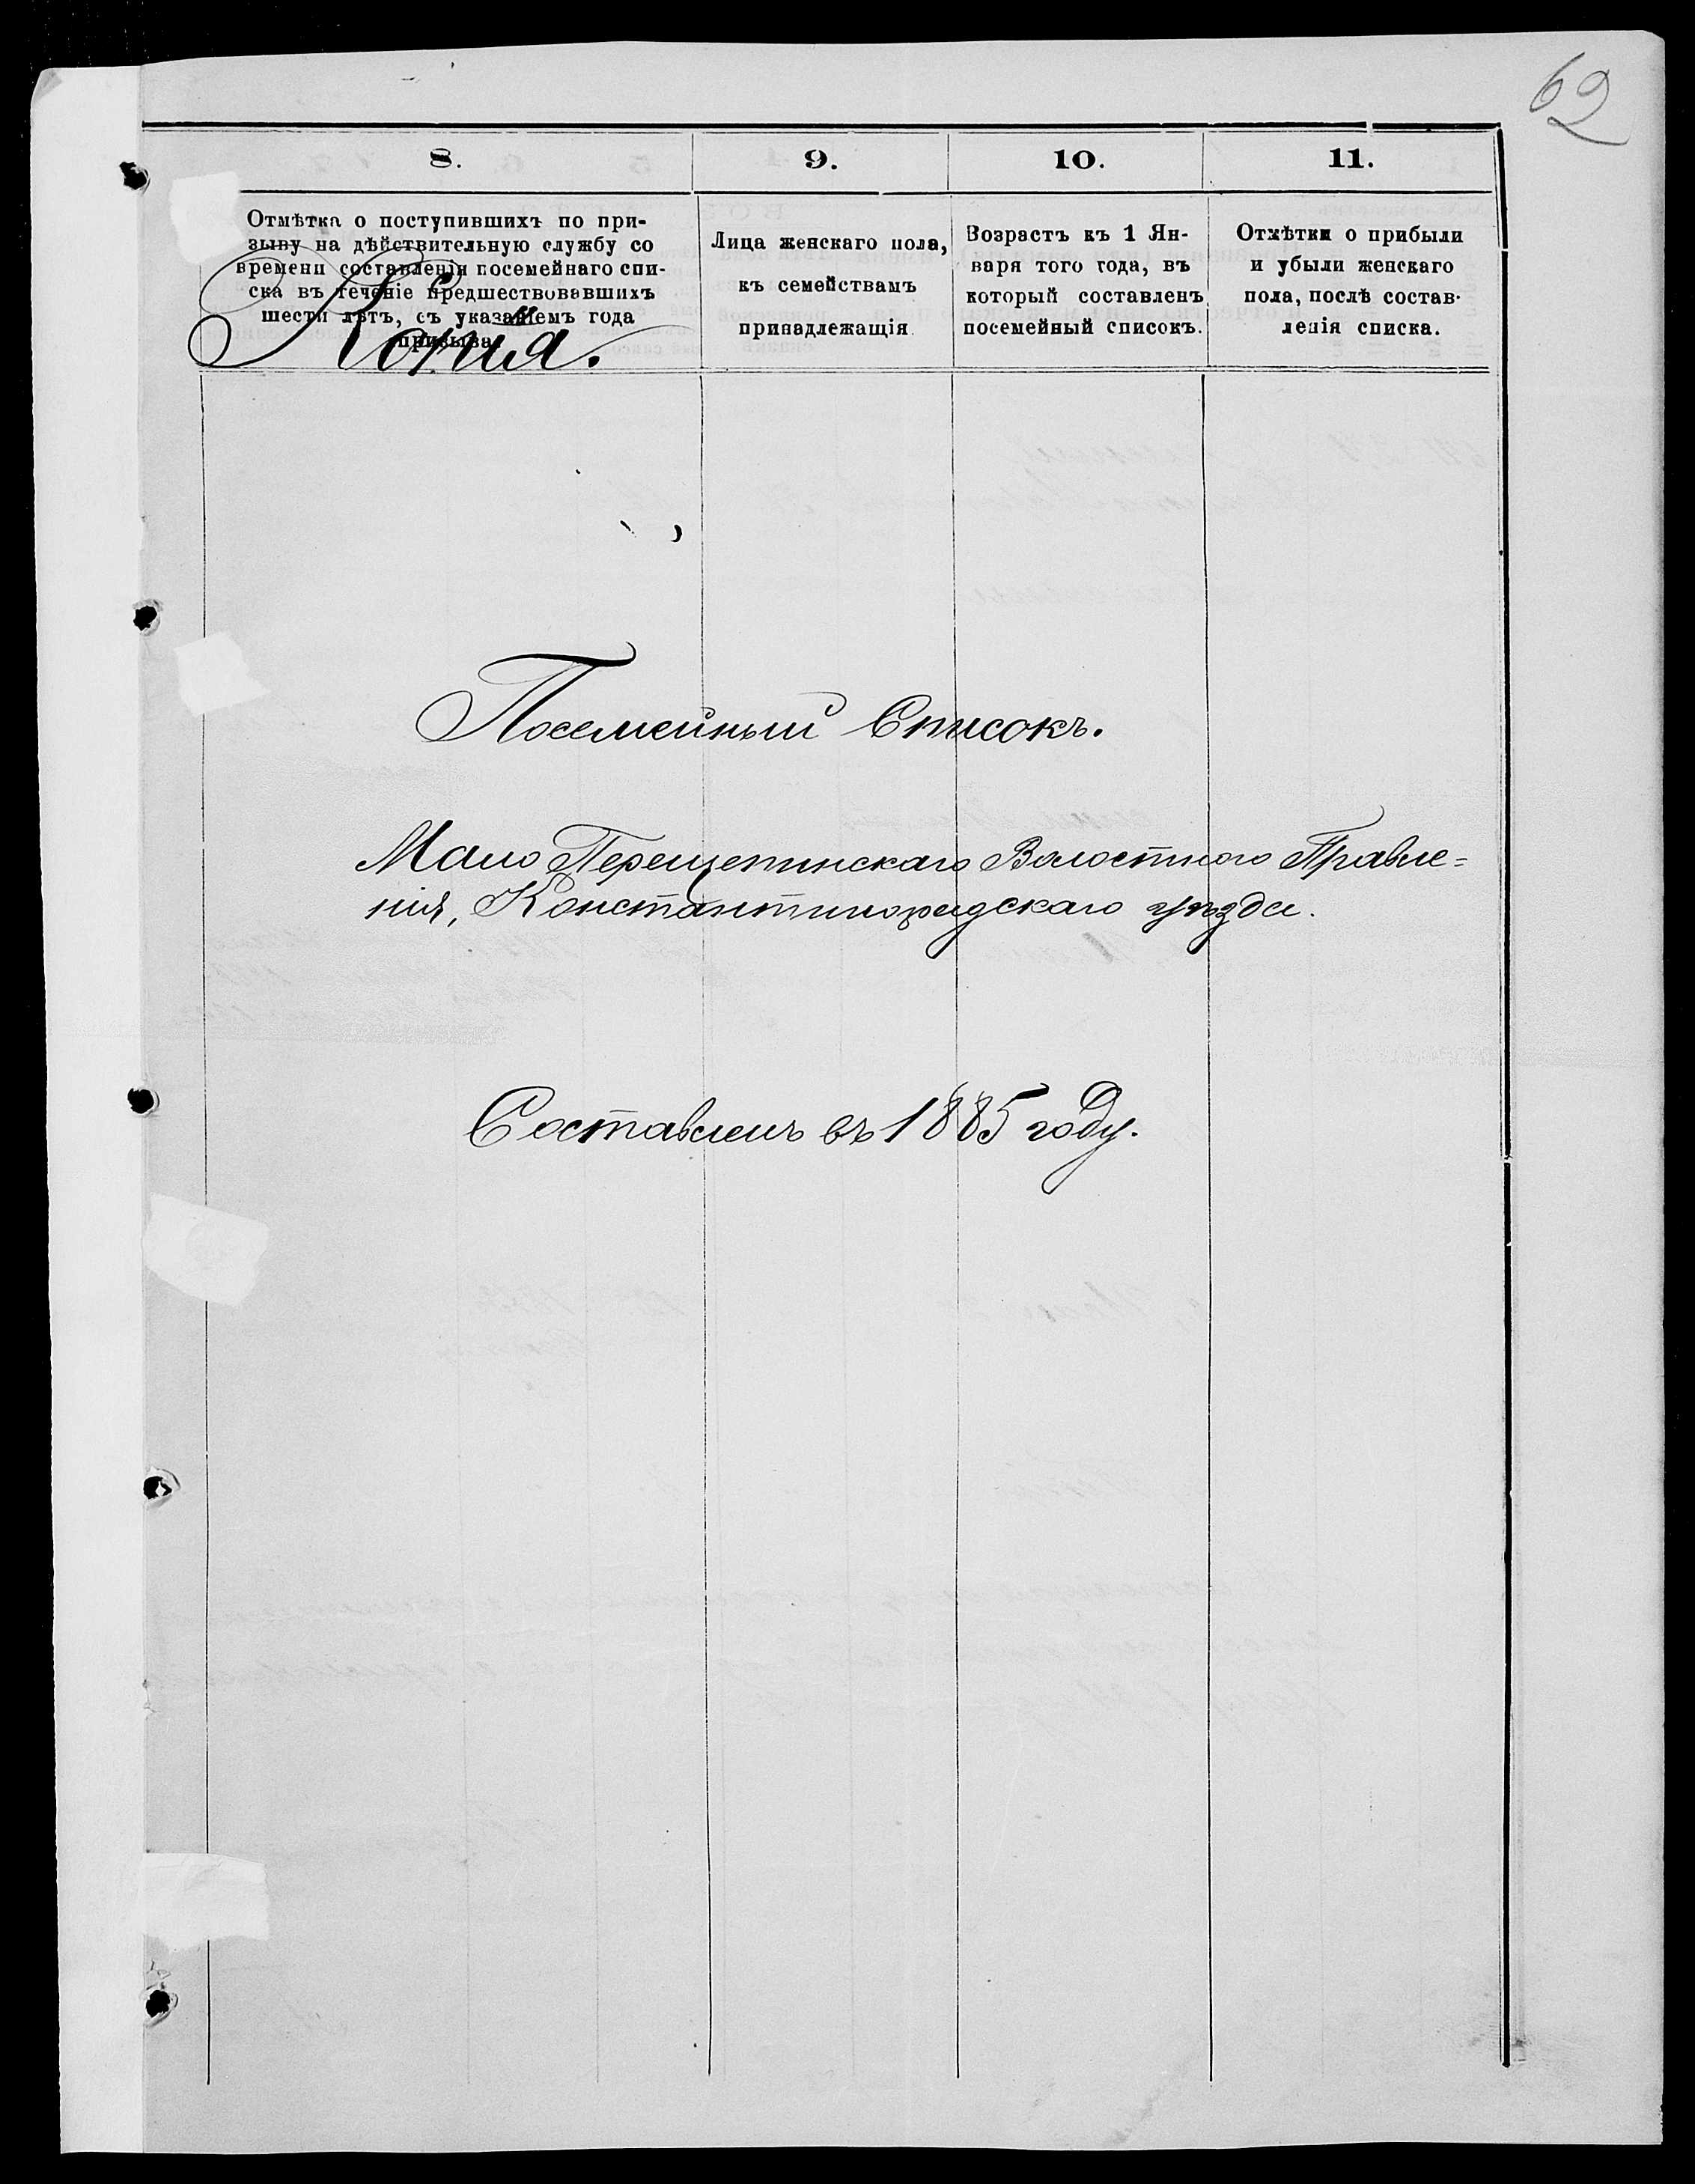 62
8. 9. 10. 11.
Отмѣтка о поступившихъ по при-
зыву на дѣйствительную службу со
времени составленія посемейнаго спи-
ска въ теченіе предшествовавшихъ
шести лѣтъ, съ указаніемъ года
призыва
Лица женскаго пола,
къ семействамъ
принадлежащія
Возрастъ къ 1 Ян-
варя того года, въ
который составленъ
посемейный списокъ.
Отмѣтки о прибыли
и убыли женскаго
пола, послѣ состав-
ленія списка.
Копія.
Посемейный Списокъ.
Мало Перещепинскаго Волостного Правле=
нія, Константиноградскаго уѣзда.
Составленъ въ 1885 году.